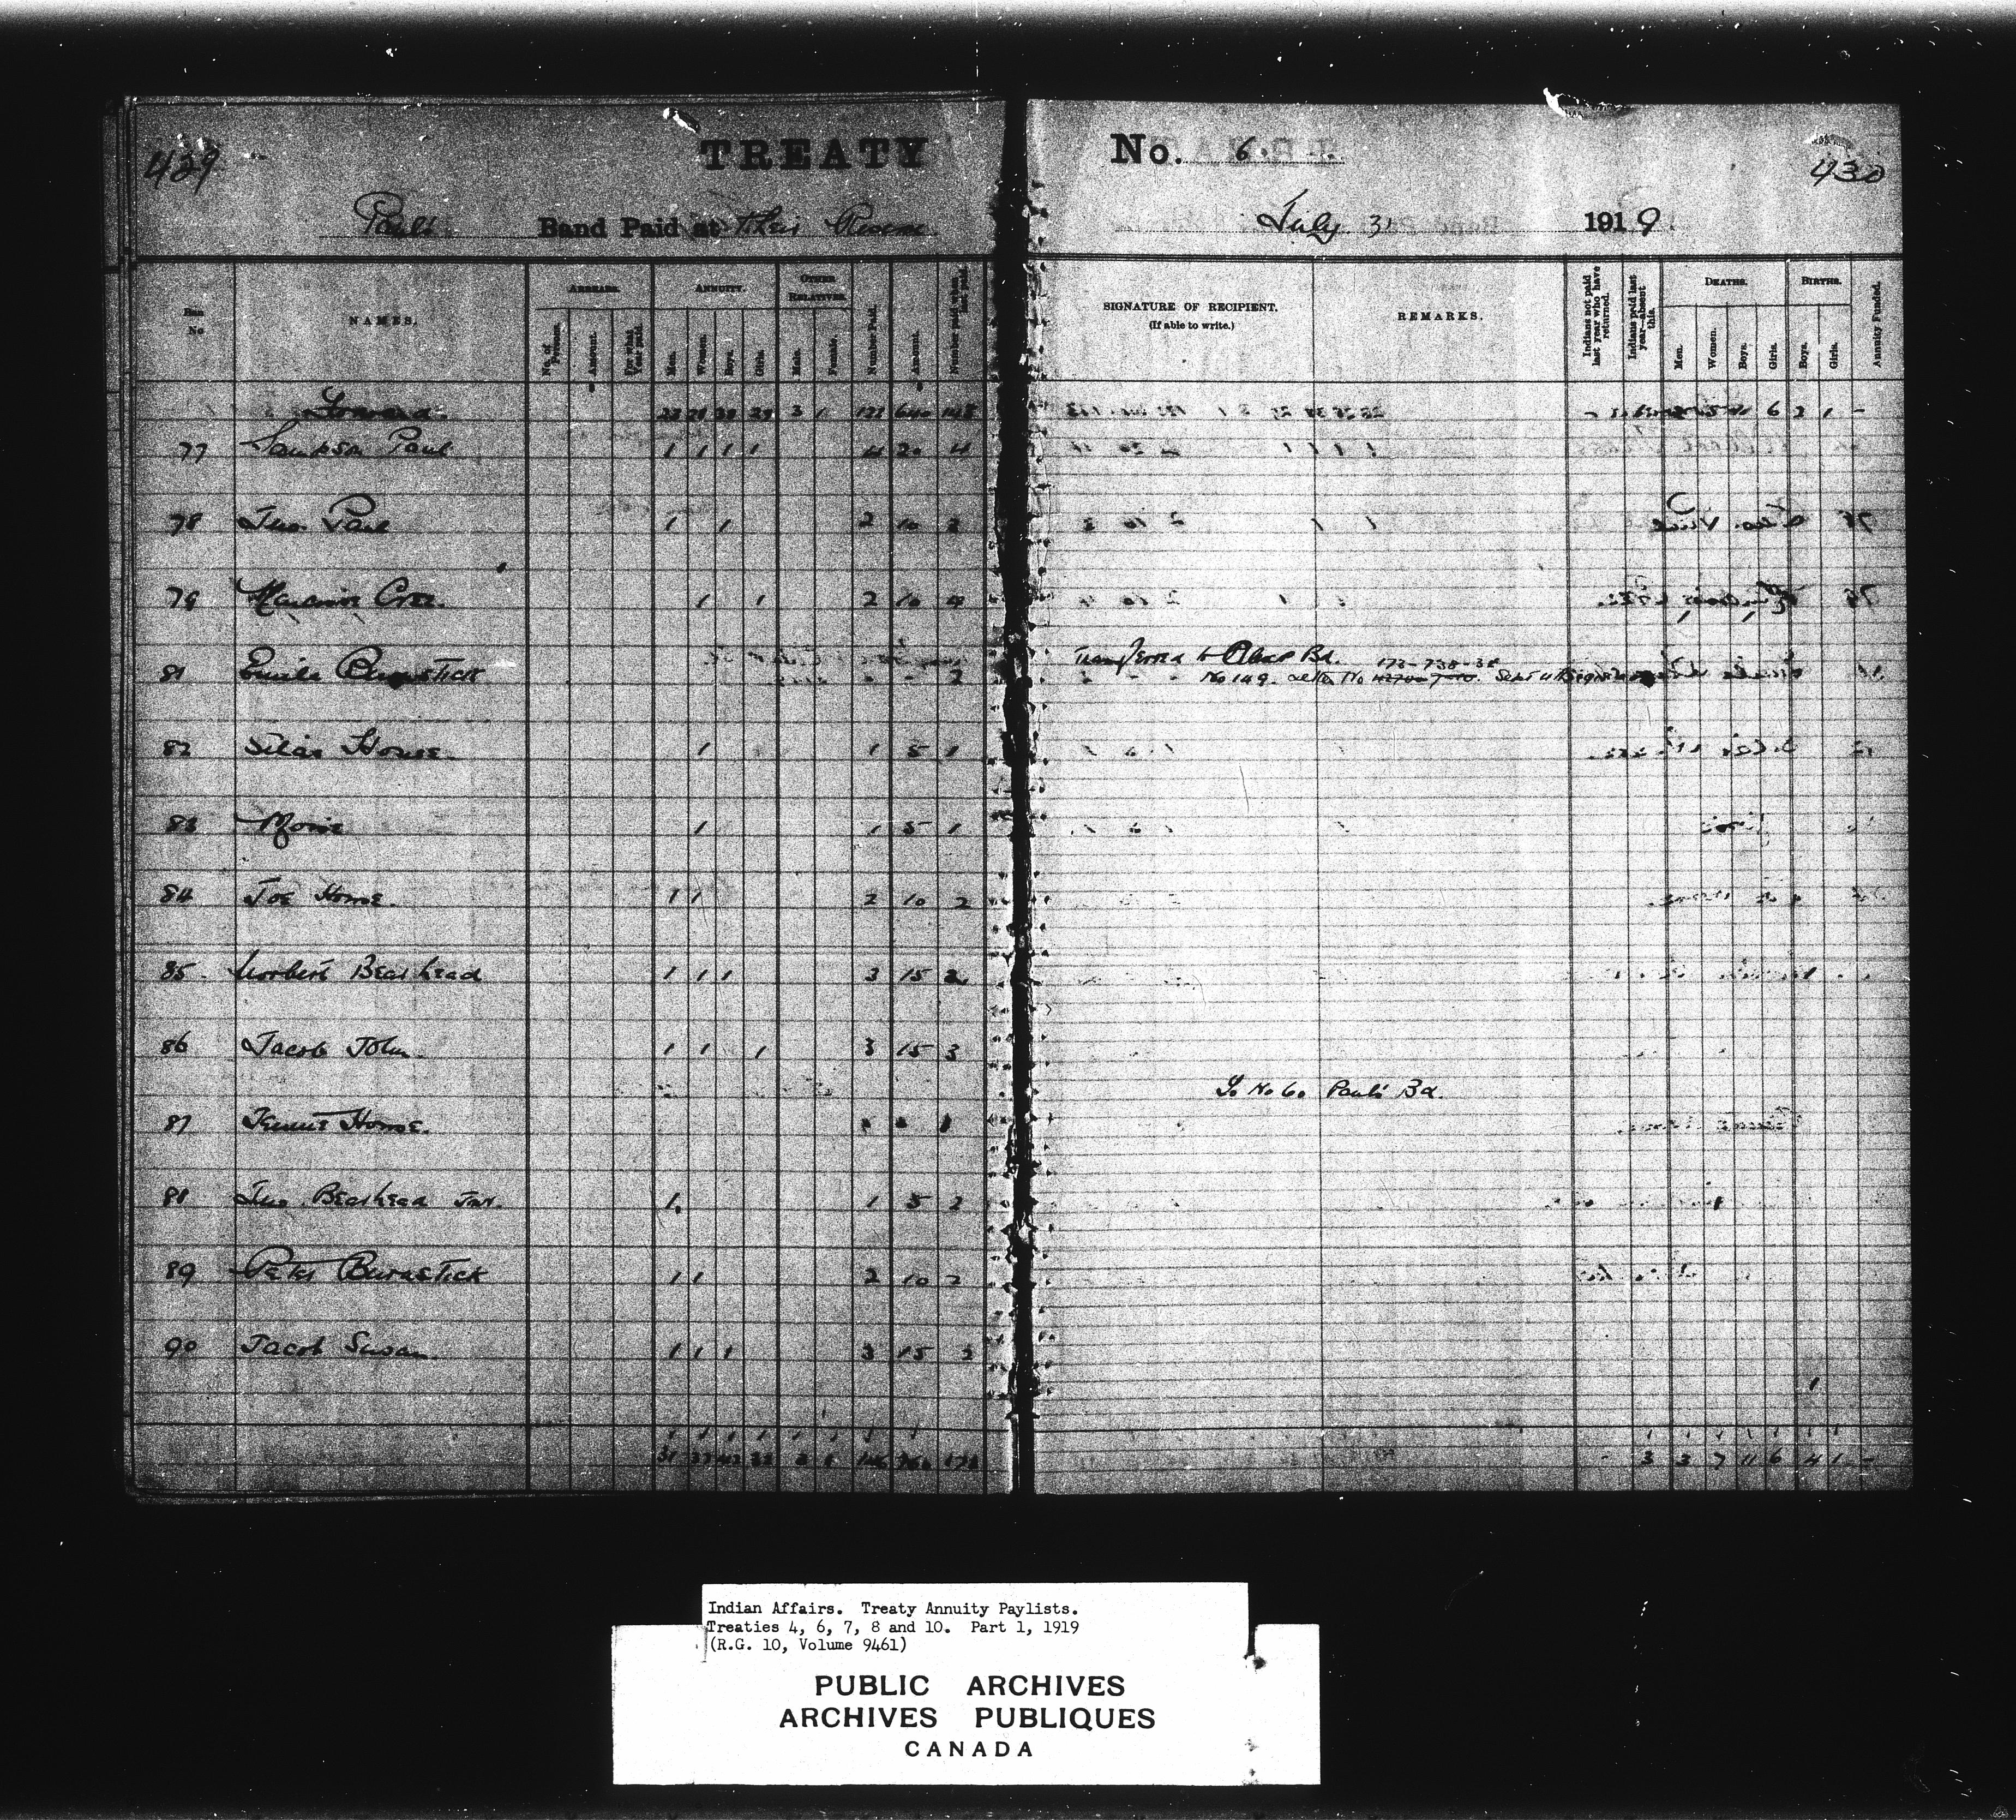 429
TREATY No. 6. 430
Paul's Band Paid at their Reserve July 31 1919
No NAMES. ARREARS. ANNUITY. OTHER RELATIVES. Number Paid. Amount. Number paid when last paid.
No. of Persons. Amount. For what Year paid. Men. Women. Boys. Girls. Male. Female.
SIGNATURE OF RECIPIENT. (If able to write.) REMARKS. Indians not paid last year who have returned. Indians paid last year—absent this. DEATHS. BIRTHS. Annuity Funded.
Men. Women. Boys. Girls. Boys. Girls.
Forward. 29 3 1 122 640 148 6 2 1 -
77 Sampson Paul 1 1 1 1 4 20 4
78 Jno. Paul 1 1 2 10 2
79 Cree. 1 1 2 10 4
81 Burnstick - - 2 Transferred to Bd. 173-738-38
No 149. letter No Sept
82 Silas House. 1 1 5 1
83 1 1 5 1
84 Joe House. 1 1 2 10 2
85 Norbert Bearhead 1 1 1 3 15 2
86 Jacob John. 1 1 1 3 15 3
To No 60 Paul's Bd.
87 House.
88 Jno. Bearhead Jnr. 1 1 5 2
89 Peter Burnstick 1 1 2 10 2
90 Jacob Susan. 1 1 1 3 15 2
1
31 37 - 3 3 7 11 6 4 1 -
Indian Affairs. Treaty Annuity Paylists.
Treaties 4, 6, 7, 8 and 10. Part 1, 1919
(R.G. 10, Volume 9461)
PUBLIC ARCHIVES
ARCHIVES PUBLIQUES
CANADA